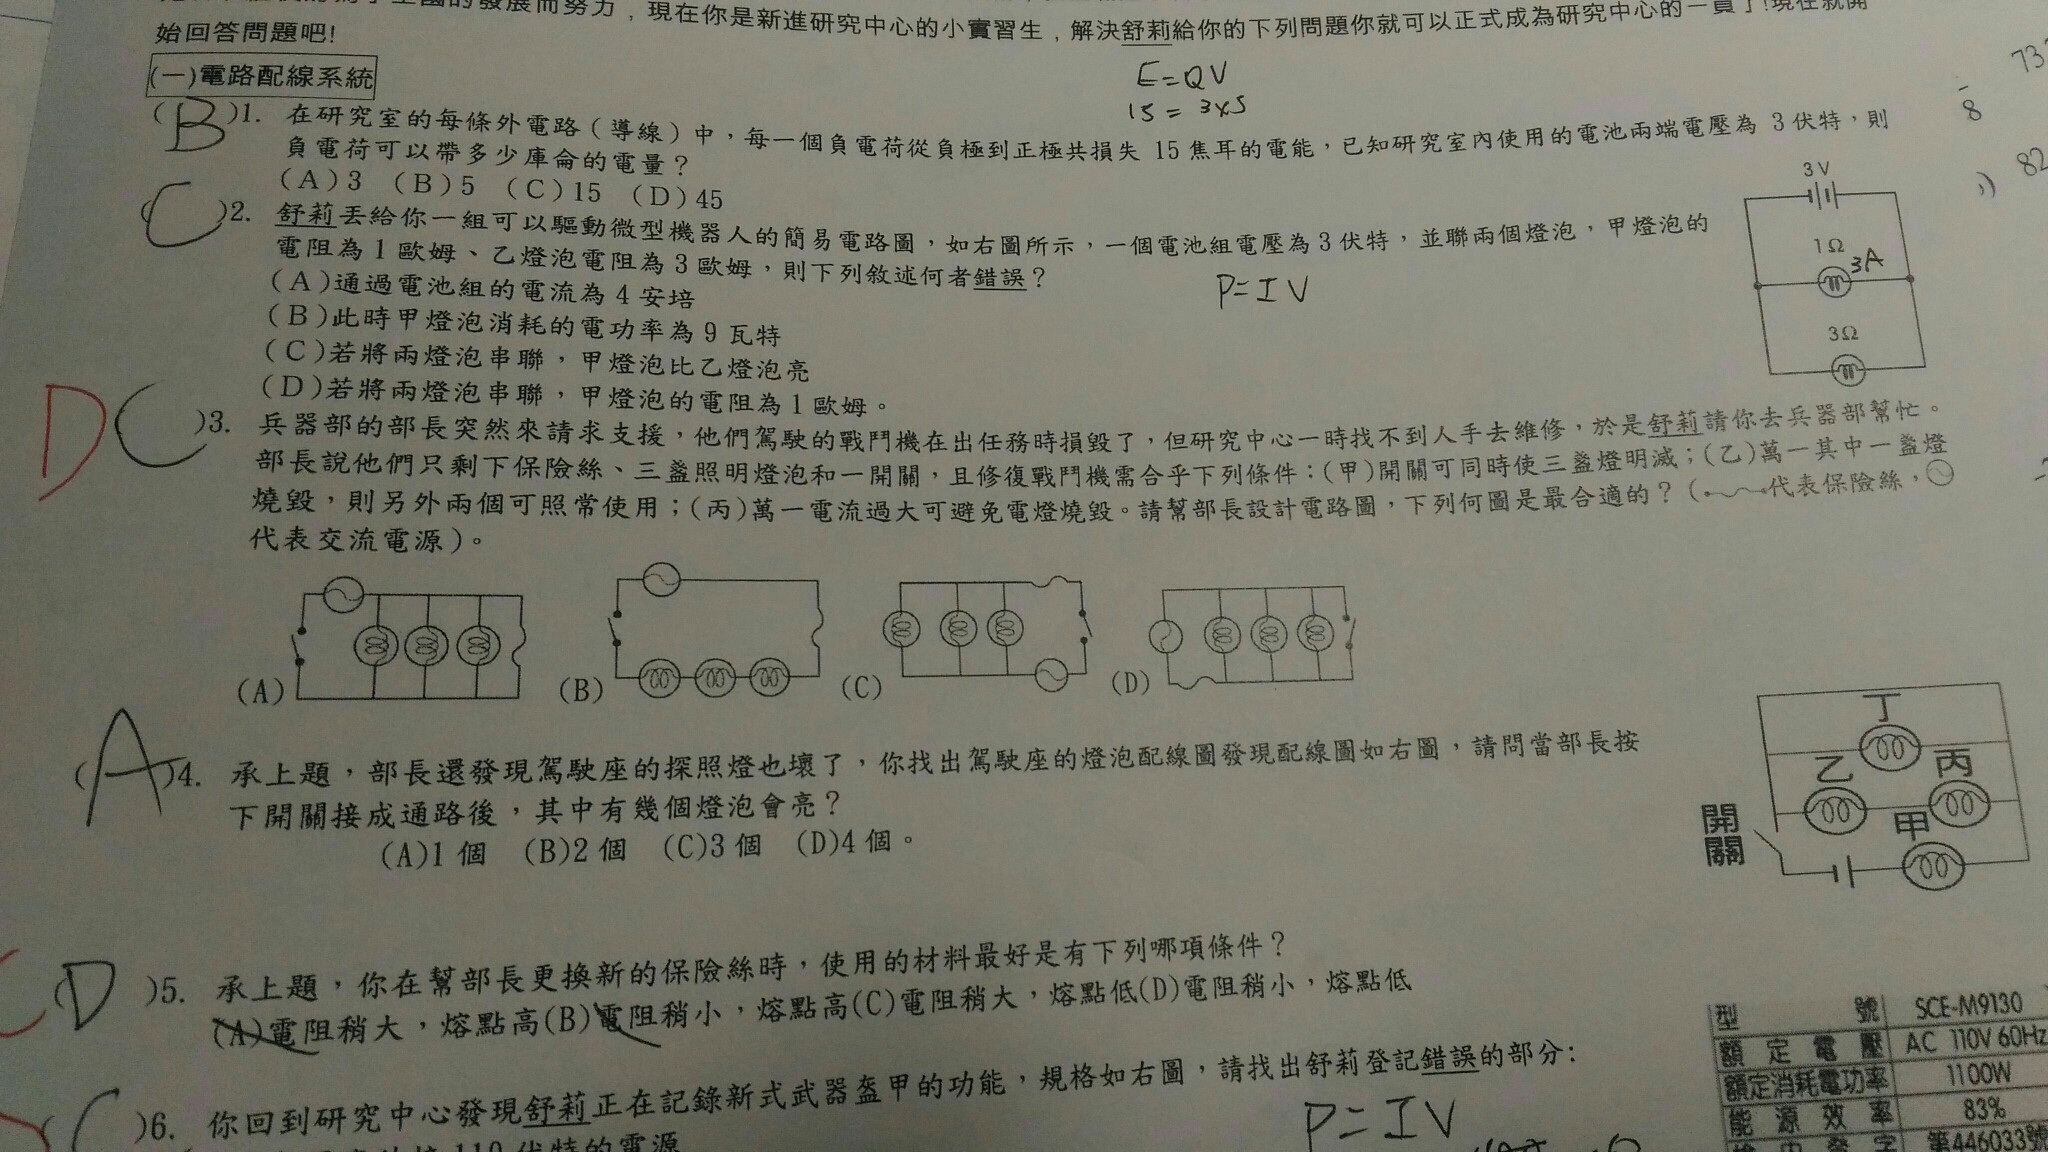 的發展而努力，現在你是新進研究中心的小實習生，解決舒莉給你的下列問題你就可以正式成為研究中心的一員了!現在就開
始回答問題吧!
(一)電路配線系統
E=QV
15=3x5
(B)1. 在研究室的每條外電路(導線)中，每一個負電荷從負極到正極共損失 15 焦耳的電能，已知研究室內使用的電池兩端電壓為 3 伏特，則
負電荷可以帶多少庫侖的電量？
(A)3 (B)5 (C)15 (D)45
(C)2. 舒莉丟給你一組可以驅動微型機器人的簡易電路圖，如右圖所示，一個電池組電壓為 3 伏特，並聯兩個燈泡，甲燈泡的
電阻為 1 歐姆、乙燈泡電阻為 3 歐姆，則下列敘述何者錯誤？
P=IV
(A)通過電池組的電流為 4 安培
(B)此時甲燈泡消耗的電功率為 9 瓦特
(C)若將兩燈泡串聯，甲燈泡比乙燈泡亮
(D)若將兩燈泡串聯，甲燈泡的電阻為 1 歐姆。
3V
1Ω
3A
3Ω
73
8
82
D
C)3. 兵器部的部長突然來請求支援，他們駕駛的戰鬥機在出任務時損毀了，但研究中心一時找不到人手去維修，於是舒莉請你去兵器部幫忙。
部長說他們只剩下保險絲、三盞照明燈泡和一開關，且修復戰鬥機需合乎下列條件：(甲)開關可同時使三盞燈明滅；(乙)萬一其中一盞燈
燒毀，則另外兩個可照常使用；(丙)萬一電流過大可避免電燈燒毀。請幫部長設計電路圖，下列何圖是最合適的？(代表保險絲，
代表交流電源)。
(A) (B) (C) (D)
(A)4. 承上題，部長還發現駕駛座的探照燈也壞了，你找出駕駛座的燈泡配線圖發現配線圖如右圖，請問當部長按
下開關接成通路後，其中有幾個燈泡會亮？
(A)1 個 (B)2 個 (C)3 個 (D)4 個。
丁
乙 丙
甲
開關
(D)5. 承上題，你在幫部長更換新的保險絲時，使用的材料最好是有下列哪項條件？
(A)電阻稍大，熔點高(B)電阻稍小，熔點高(C)電阻稍大，熔點低(D)電阻稍小，熔點低
(C)6. 你回到研究中心發現舒莉正在記錄新式武器盔甲的功能，規格如右圖，請找出舒莉登記錯誤的部分:
P=IV
110 伏特的電源
型號 SCE-M9130
額定電壓 AC 110V 60Hz
額定消耗電功率 1100W
能源效率 83%
第446033號